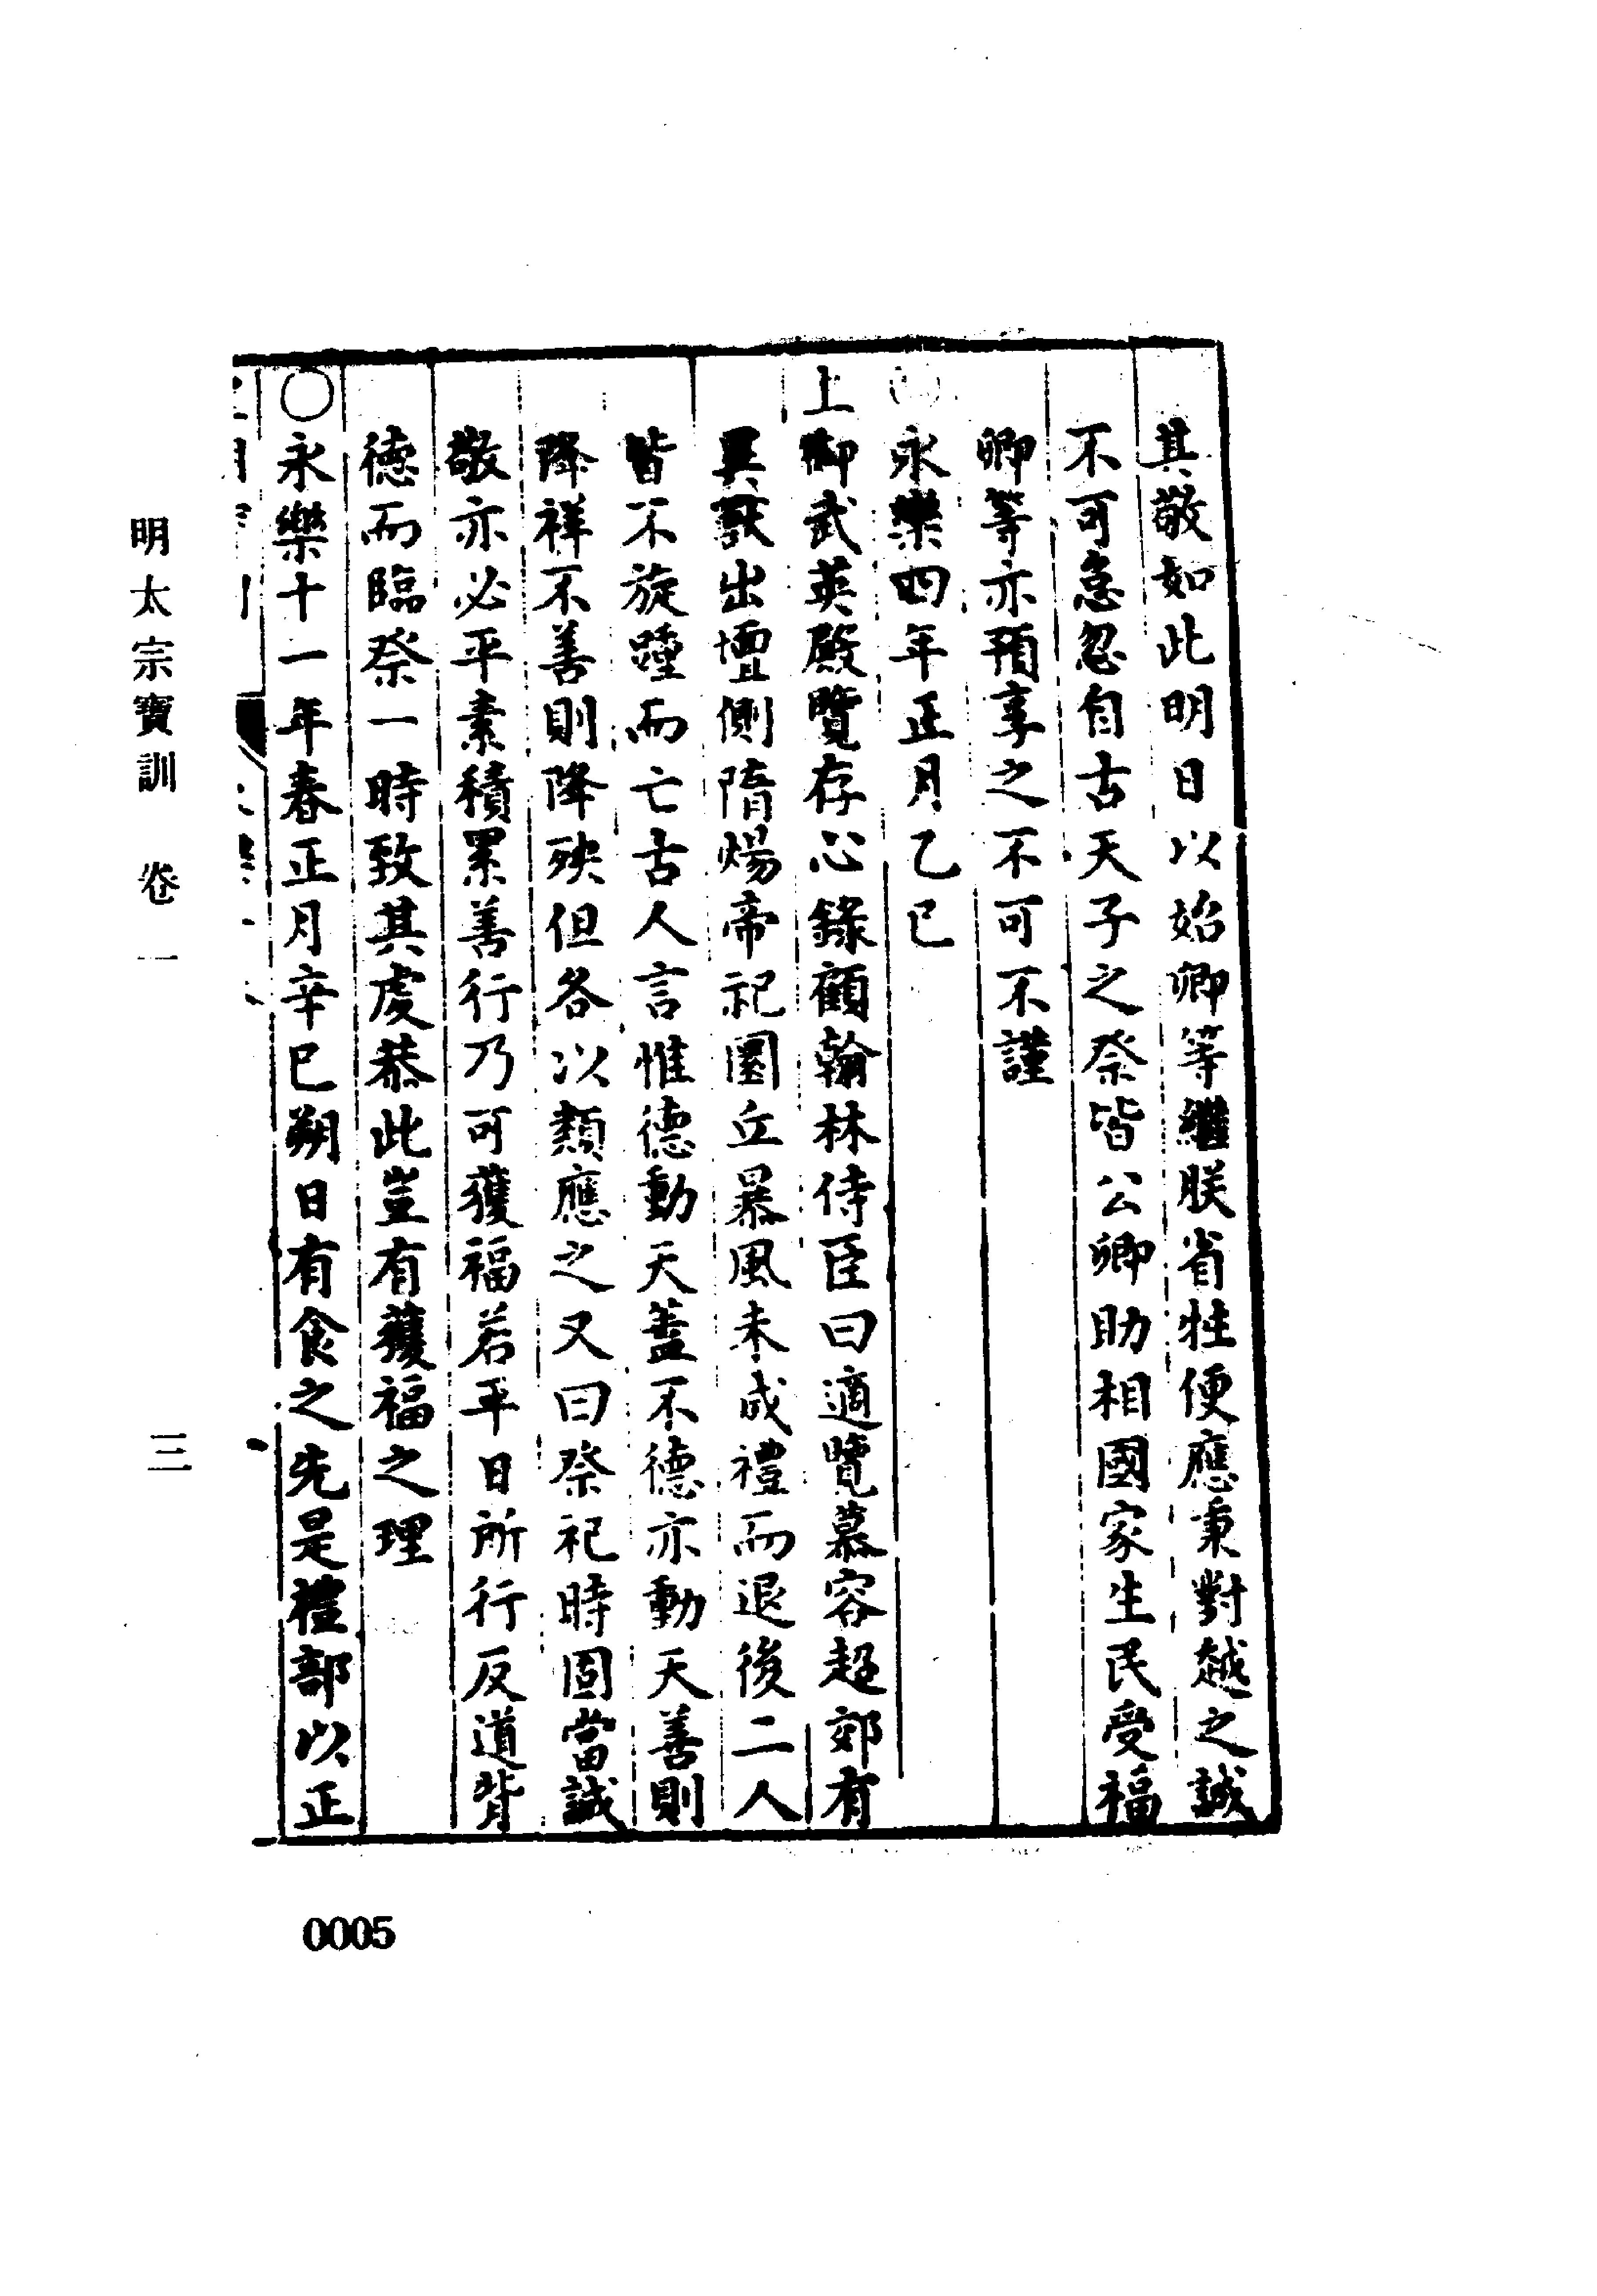 其敬如此明日以始卿等繼朕省牲便應秉對越之誠
不可怠忽自古天子之祭皆公卿助相國家生民受福
卿等亦預享之不可不謹
○永樂四年正月乙巳
上御武英殿覽存心錄顧翰林侍臣曰適覽慕容超郊有
異獸出壇側隋煬帝祀圜丘暴風未成禮而退後二人
皆不旋踵而亡古人言惟德動天蓋不德亦動天善則
降祥不善則降殃但各以類應之又曰祭祀時固當誠
敬亦必平素積累善行乃可獲福若平日所行反道背
德而臨祭一時致其虔恭此豈有獲福之理
○永樂十一年春正月辛巳朔日有食之先是禮部以正
明太宗寶訓 卷一 三
0005